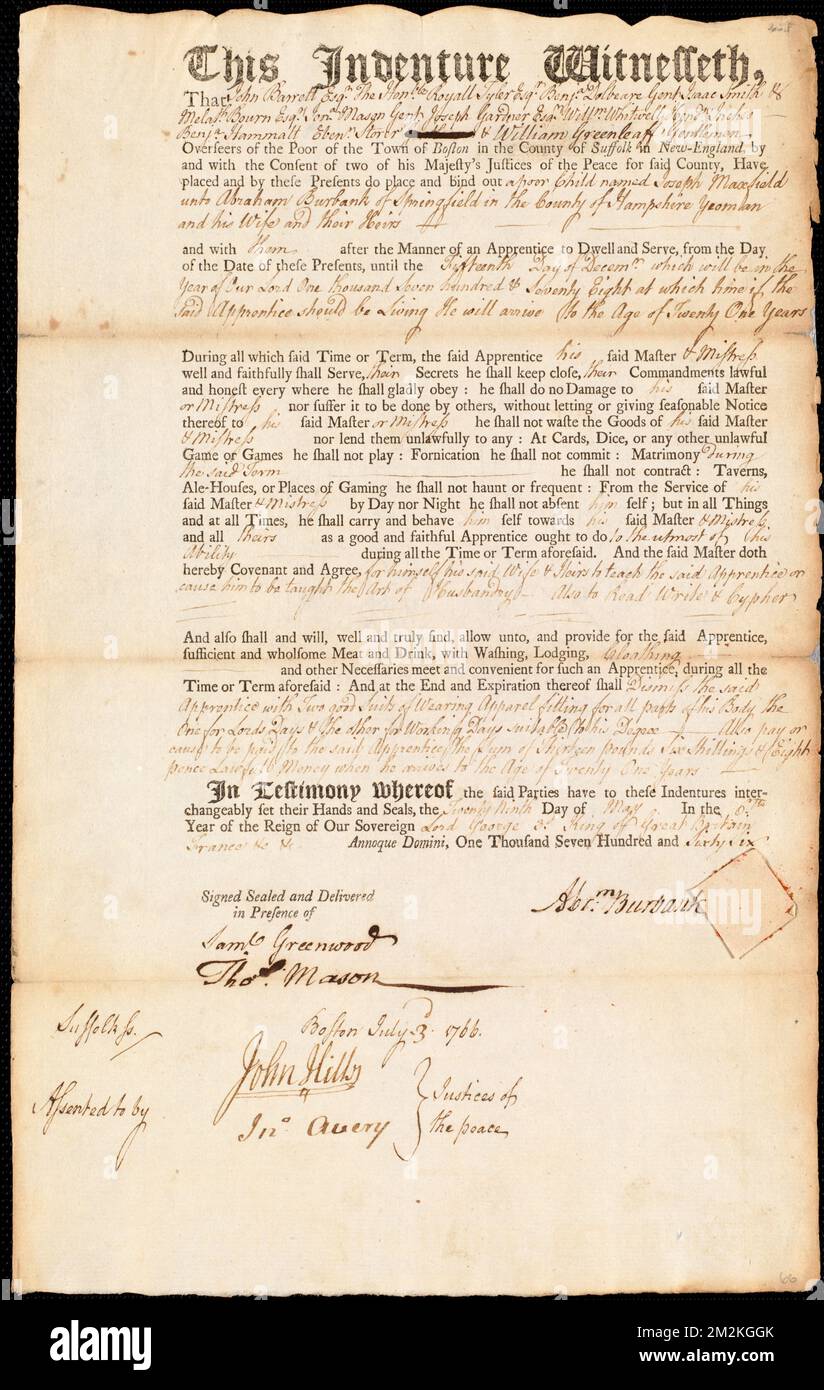 This Indenture Witnesseth,
That John Barrett Esqr. The Honble. Royall Tyler Esqr. Benja. Dolbeare Gent. Isaac Smith &
Melah. Bourn Esqr. Jona. Mason Gent. Joseph Gardner Esqr. Willm. Whitwell
Benja. Hammatt Ebenr. Storer & William Greenleaf Gentlemen
Overseers of the Poor of the Town of Boston in the County of Suffolk in New-England, by
and with the Consent of two of his Majesty's Justices of the Peace for said County, Have
placed and by these Presents do place and bind out a poor Child named Joseph Maxfield
unto Abraham Burbank of Springfield in the County of Hampshire Yeoman
and his Wife and their Heirs
and with them after the Manner of an Apprentice to Dwell and Serve, from the Day
of the Date of these Presents, until the Fifteenth Day of Decemr. which will be in the
Year of Our Lord One thousand Seven hundred & Seventy Eight at which time if the
said Apprentice should be Living He will arrive to the Age of Twenty One Years
During all which said Time or Term, the said Apprentice his said Master & Mistress
well and faithfully shall Serve, their Secrets he shall keep close, their Commandments lawful
and honest every where he shall gladly obey : he shall do no Damage to his said Master
or Mistress nor suffer it to be done by others, without letting or giving seasonable Notice
thereof to his said Master or Mistress he shall not waste the Goods of his said Master
& Mistress nor lend them unlawfully to any : At Cards, Dice, or any other unlawful
Game or Games he shall not play : Fornication he shall not commit : Matrimony during
the said Term he shall not contract : Taverns,
Ale-Houses, or Places of Gaming he shall not haunt or frequent : From the Service of his
said Master & Mistress by Day nor Night he shall not absent him self ; but in all Things
and at all Times, he shall carry and behave him self towards his said Master & Mistress
and all theirs as a good and faithful Apprentice ought to do to the utmost of his
Ability during all the Time or Term aforesaid. And the said Master doth
hereby Covenant and Agree, for himself his said Wife & Heirs to teach the said Apprentice or
cause him to be taught the Art of Husbandry Also to Read Write & Cypher
And also shall and will, well and truly find, allow unto, and provide for the said Apprentice,
sufficient and wholsome Meat and Drink, with Washing, Lodging, Cloathing
and other Necessaries meet and convenient for such an Apprentice, during all the
Time or Term aforesaid : And at the End and Expiration thereof shall Dismiss the said
Apprentice with Two good Suits of Wearing Apparel fitting for all parts of his Body the
One for Lords Days & the other for Working Days suitable to his Degree Also pay or
cause to be paid to the said Apprentice the Sum of Thirteen pounds Six Shillings & Eight
pence Lawfull Money when he arrives to the Age of Twenty One Years
In Testimony whereof the said Parties have to these Indentures inter-
changeably set their Hands and Seals, the Twenty Ninth Day of May In the 6th.
Year of the Reign of Our Sovereign Lord George 3d. King of Great Britain
France &c &c Annoque Domini, One Thousand Seven Hundred and Sixty Six
Signed Sealed and Delivered
in Presence of
Abrm. Burbank
Saml. Greenwood
Thos. Mason
Suffolk ss. Boston July 3d. 1766.
Assented to by John Hill
Jno. Avery
Justices of
the peace
66
alamy
Image ID: 2M2KGGK
www.alamy.com